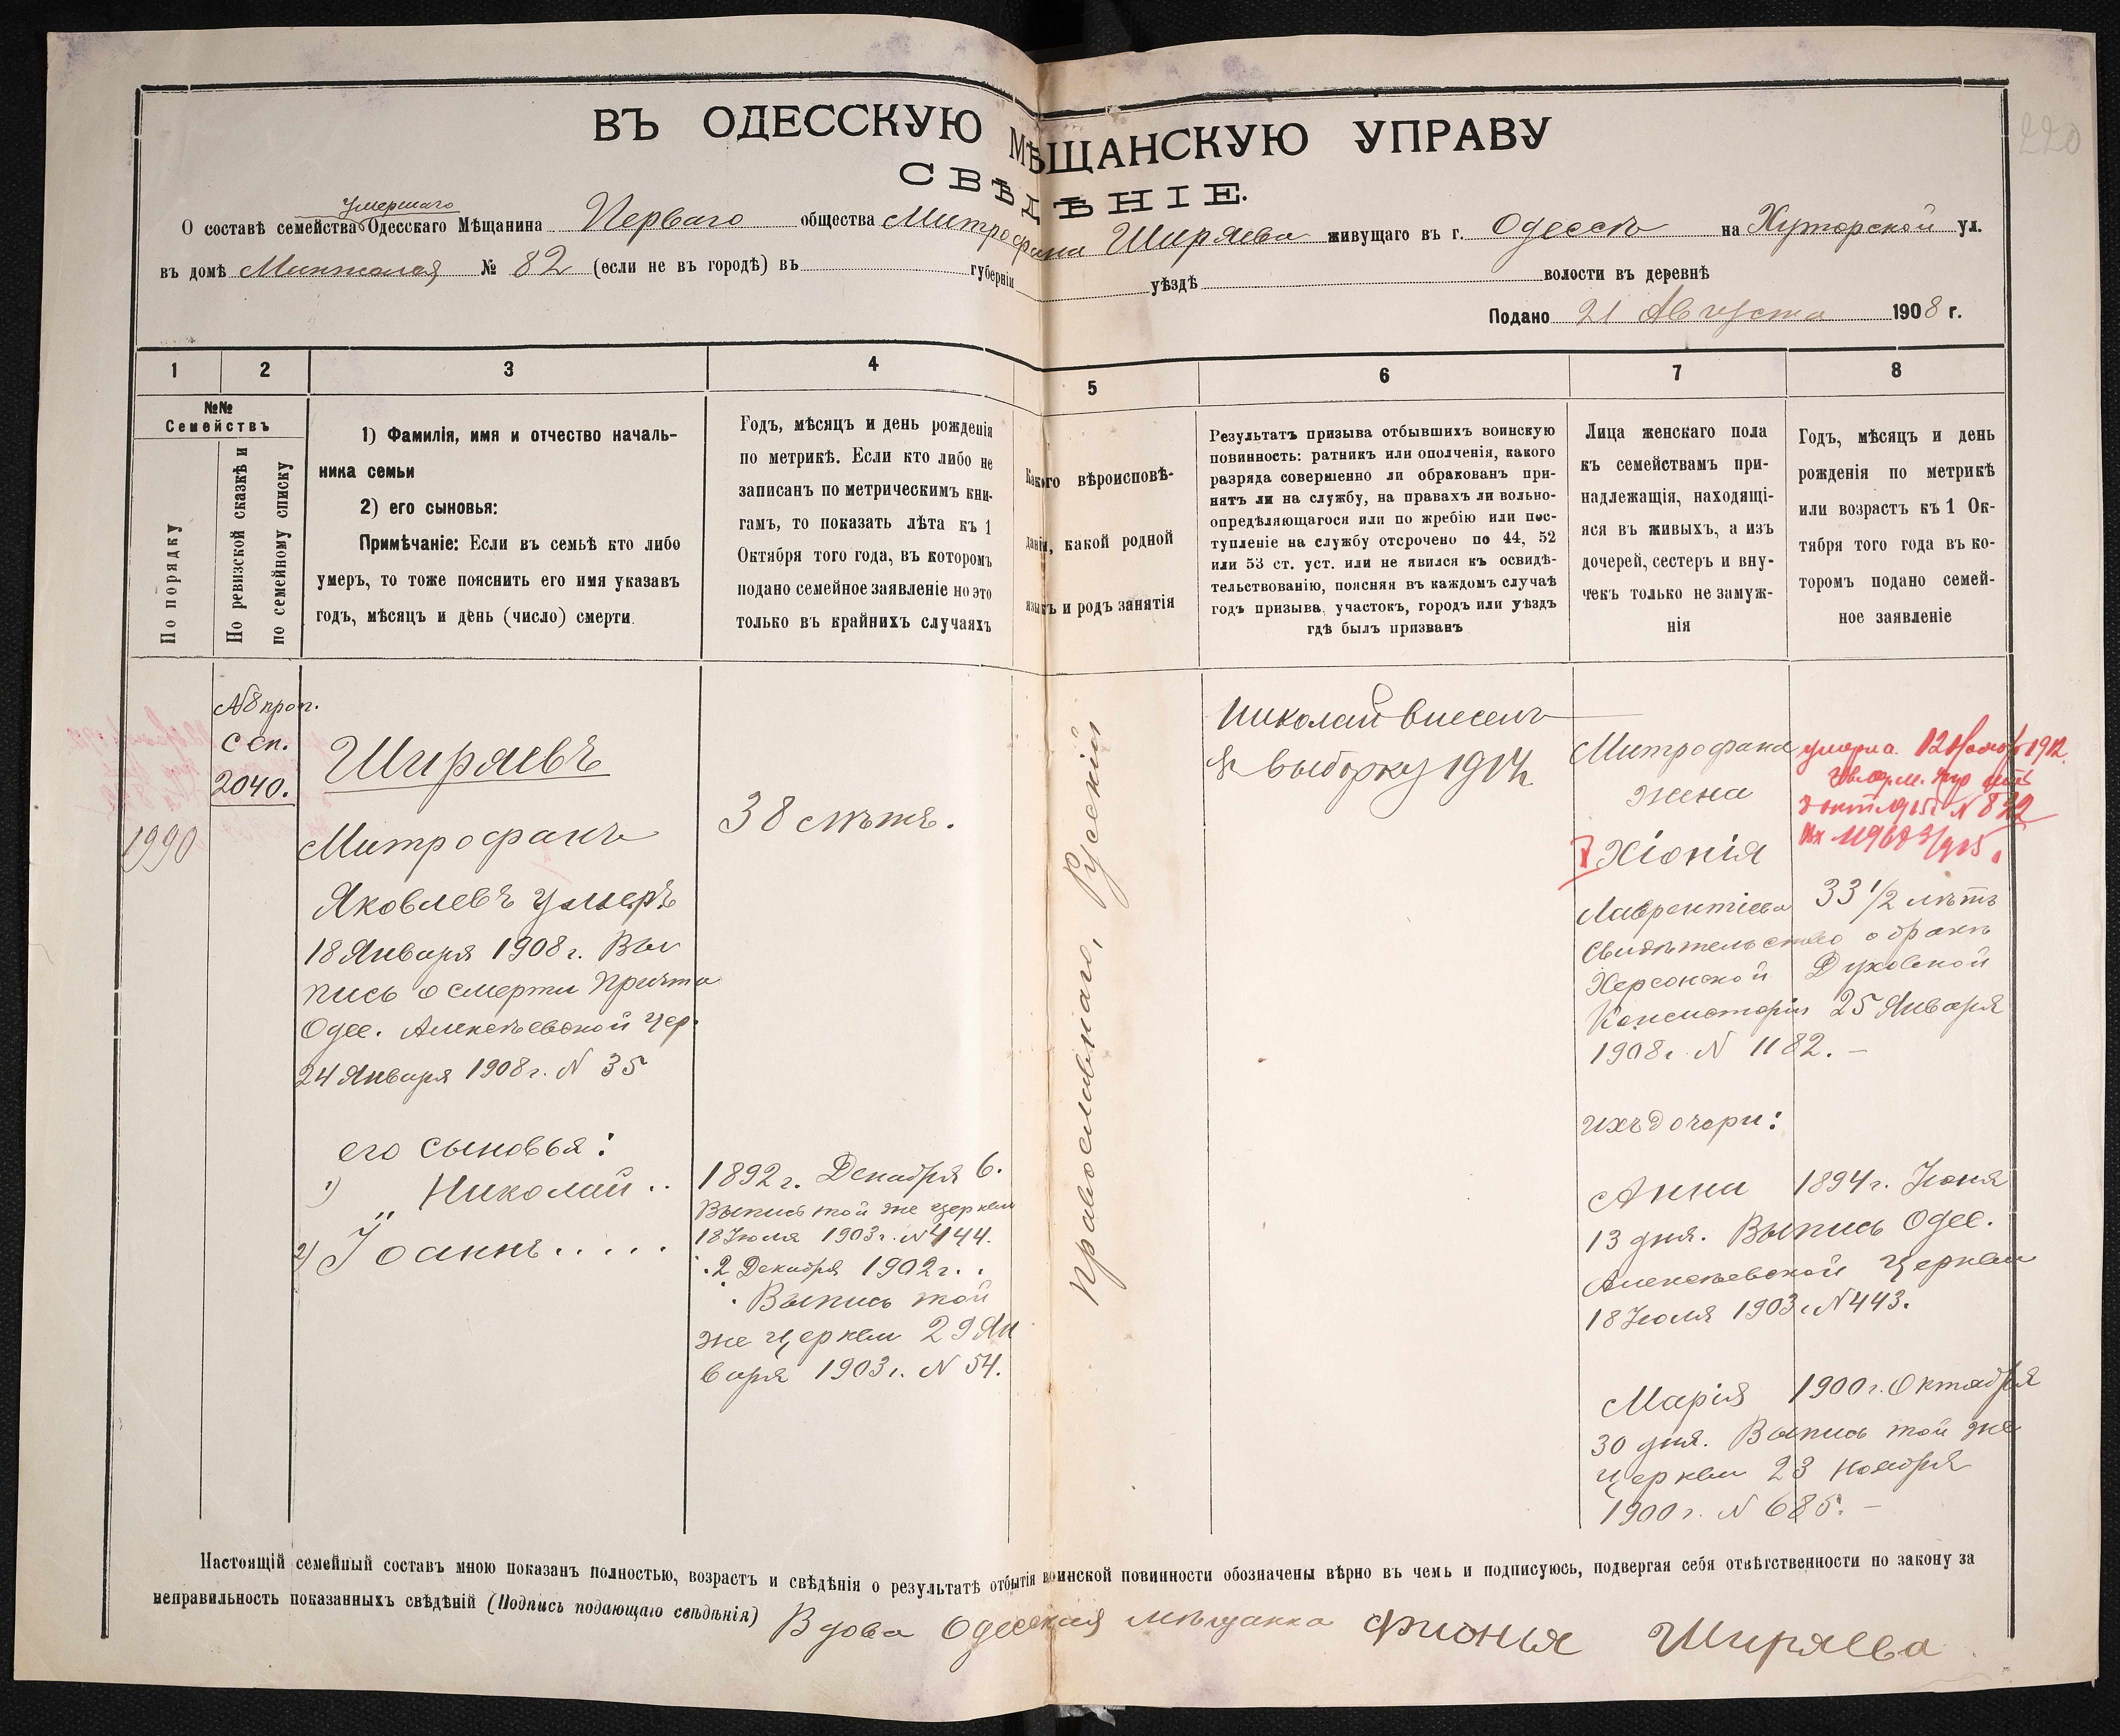 220
ВЪ ОДЕССКУЮ МѢЩАНСКУЮ УПРАВУ
СВѢДѢНІЕ.
умершаго
О составѣ семейства Одесскаго Мѣщанина Перваго общества Митрофана Ширяева живущаго въ г. Одессѣ на Хуторской ул.
въ домѣ № 82 (если не въ городѣ) въ губерніи уѣздѣ волости въ деревнѣ
Подано 21 Августа 1908 г.
1 2 3 4 5 6 7 8
№№
Семействъ
По порядку
По ревизской сказкѣ и
по семейному списку
1) Фамилія, имя и отчество началь-
ника семьи
2) его сыновья:
Примѣчаніе: Если въ семьѣ кто либо
умеръ, то тоже пояснить его имя указавъ
годъ, мѣсяцъ и день (число) смерти
Годъ, мѣсяцъ и день рожденія
по метрикѣ. Если кто либо не
записанъ по метрическимъ кни-
гамъ, то показать лѣта къ 1
Октября того года, въ которомъ
подано семейное заявленіе но это
только въ крайнихъ случаяхъ
Какого вѣроисповѣ-
данія, какой родной
языкъ и родъ занятія
Результатъ призыва отбывшихъ воинскую
повинность: ратникъ или ополченія, какого
разряда совершенно ли обракованъ при-
нятъ ли на службу, на правахъ ли вольно-
опредѣляющагося или по жребію или пос-
тупленіе на службу отсрочено по 44, 52
или 53 ст. уст. или не явился къ освидѣ-
тельствованію, поясняя въ каждомъ случаѣ
годъ призыва, участокъ, городъ или уѣздъ
гдѣ былъ призванъ
Лица женскаго пола
къ семействамъ при-
надлежащія, находящі-
яся въ живыхъ, а изъ
дочерей, сестеръ и вну-
чекъ только не замуж-
нія
Годъ, мѣсяцъ и день
рожденія по метрикѣ
или возрастъ къ 1 Ок-
тября того года въ ко-
торомъ подано семей-
ное заявленіе
1990
№8 проп.
с сп.
2040.
Ширяевъ
Митрофанъ
Яковлевъ умеръ
18 Января 1908 г. Вы
пись о смерти Причта
Одес. Алексѣевской цер.
24 Января 1908 г. N 35
его сыновья:
1) " Николай..
2) Іоаннъ.....
38 лѣтъ.
1892 г. Декабря 6.
Выпись той же церкви
18 Іюля 1903 г. N 444.
2 Декабря 1902 г.
Выпись той
же церкви 29 Ян
варя 1903 г. N 54.
Православнаго, Русскій
Николай внесенъ
въ выборку 1914
Митрофана
жена
Хіонія
Лаврентіева 33 1/2 лѣтъ
Свидѣтельство о бракѣ
Херсонской Духовной
Консисторіи 25 Января
1908 г. N 1182. —
умерла. 12 1912.
N 822
ихъ дочери:
Анна 1894 г. Іюня
13 дня. Выпись Одес.
Алексѣевской церкви
18 Іюля 1903 г. N 443.
Марія 1900 г. Октября
30 дня. Выпись той же
церкви 23 Ноября
1900 г. N 685. —
Настоящій семейный составъ мною показанъ полностью, возрастъ и свѣдѣнія о результатѣ отбытія воинской повинности обозначены вѣрно въ чемъ и подписуюсь, подвергая себя отвѣтственности по закону за
неправильность показанныхъ свѣдѣній (Подпись подающаго свѣдѣнія) Вдова Одесская мѣщанка Фионія Ширяева